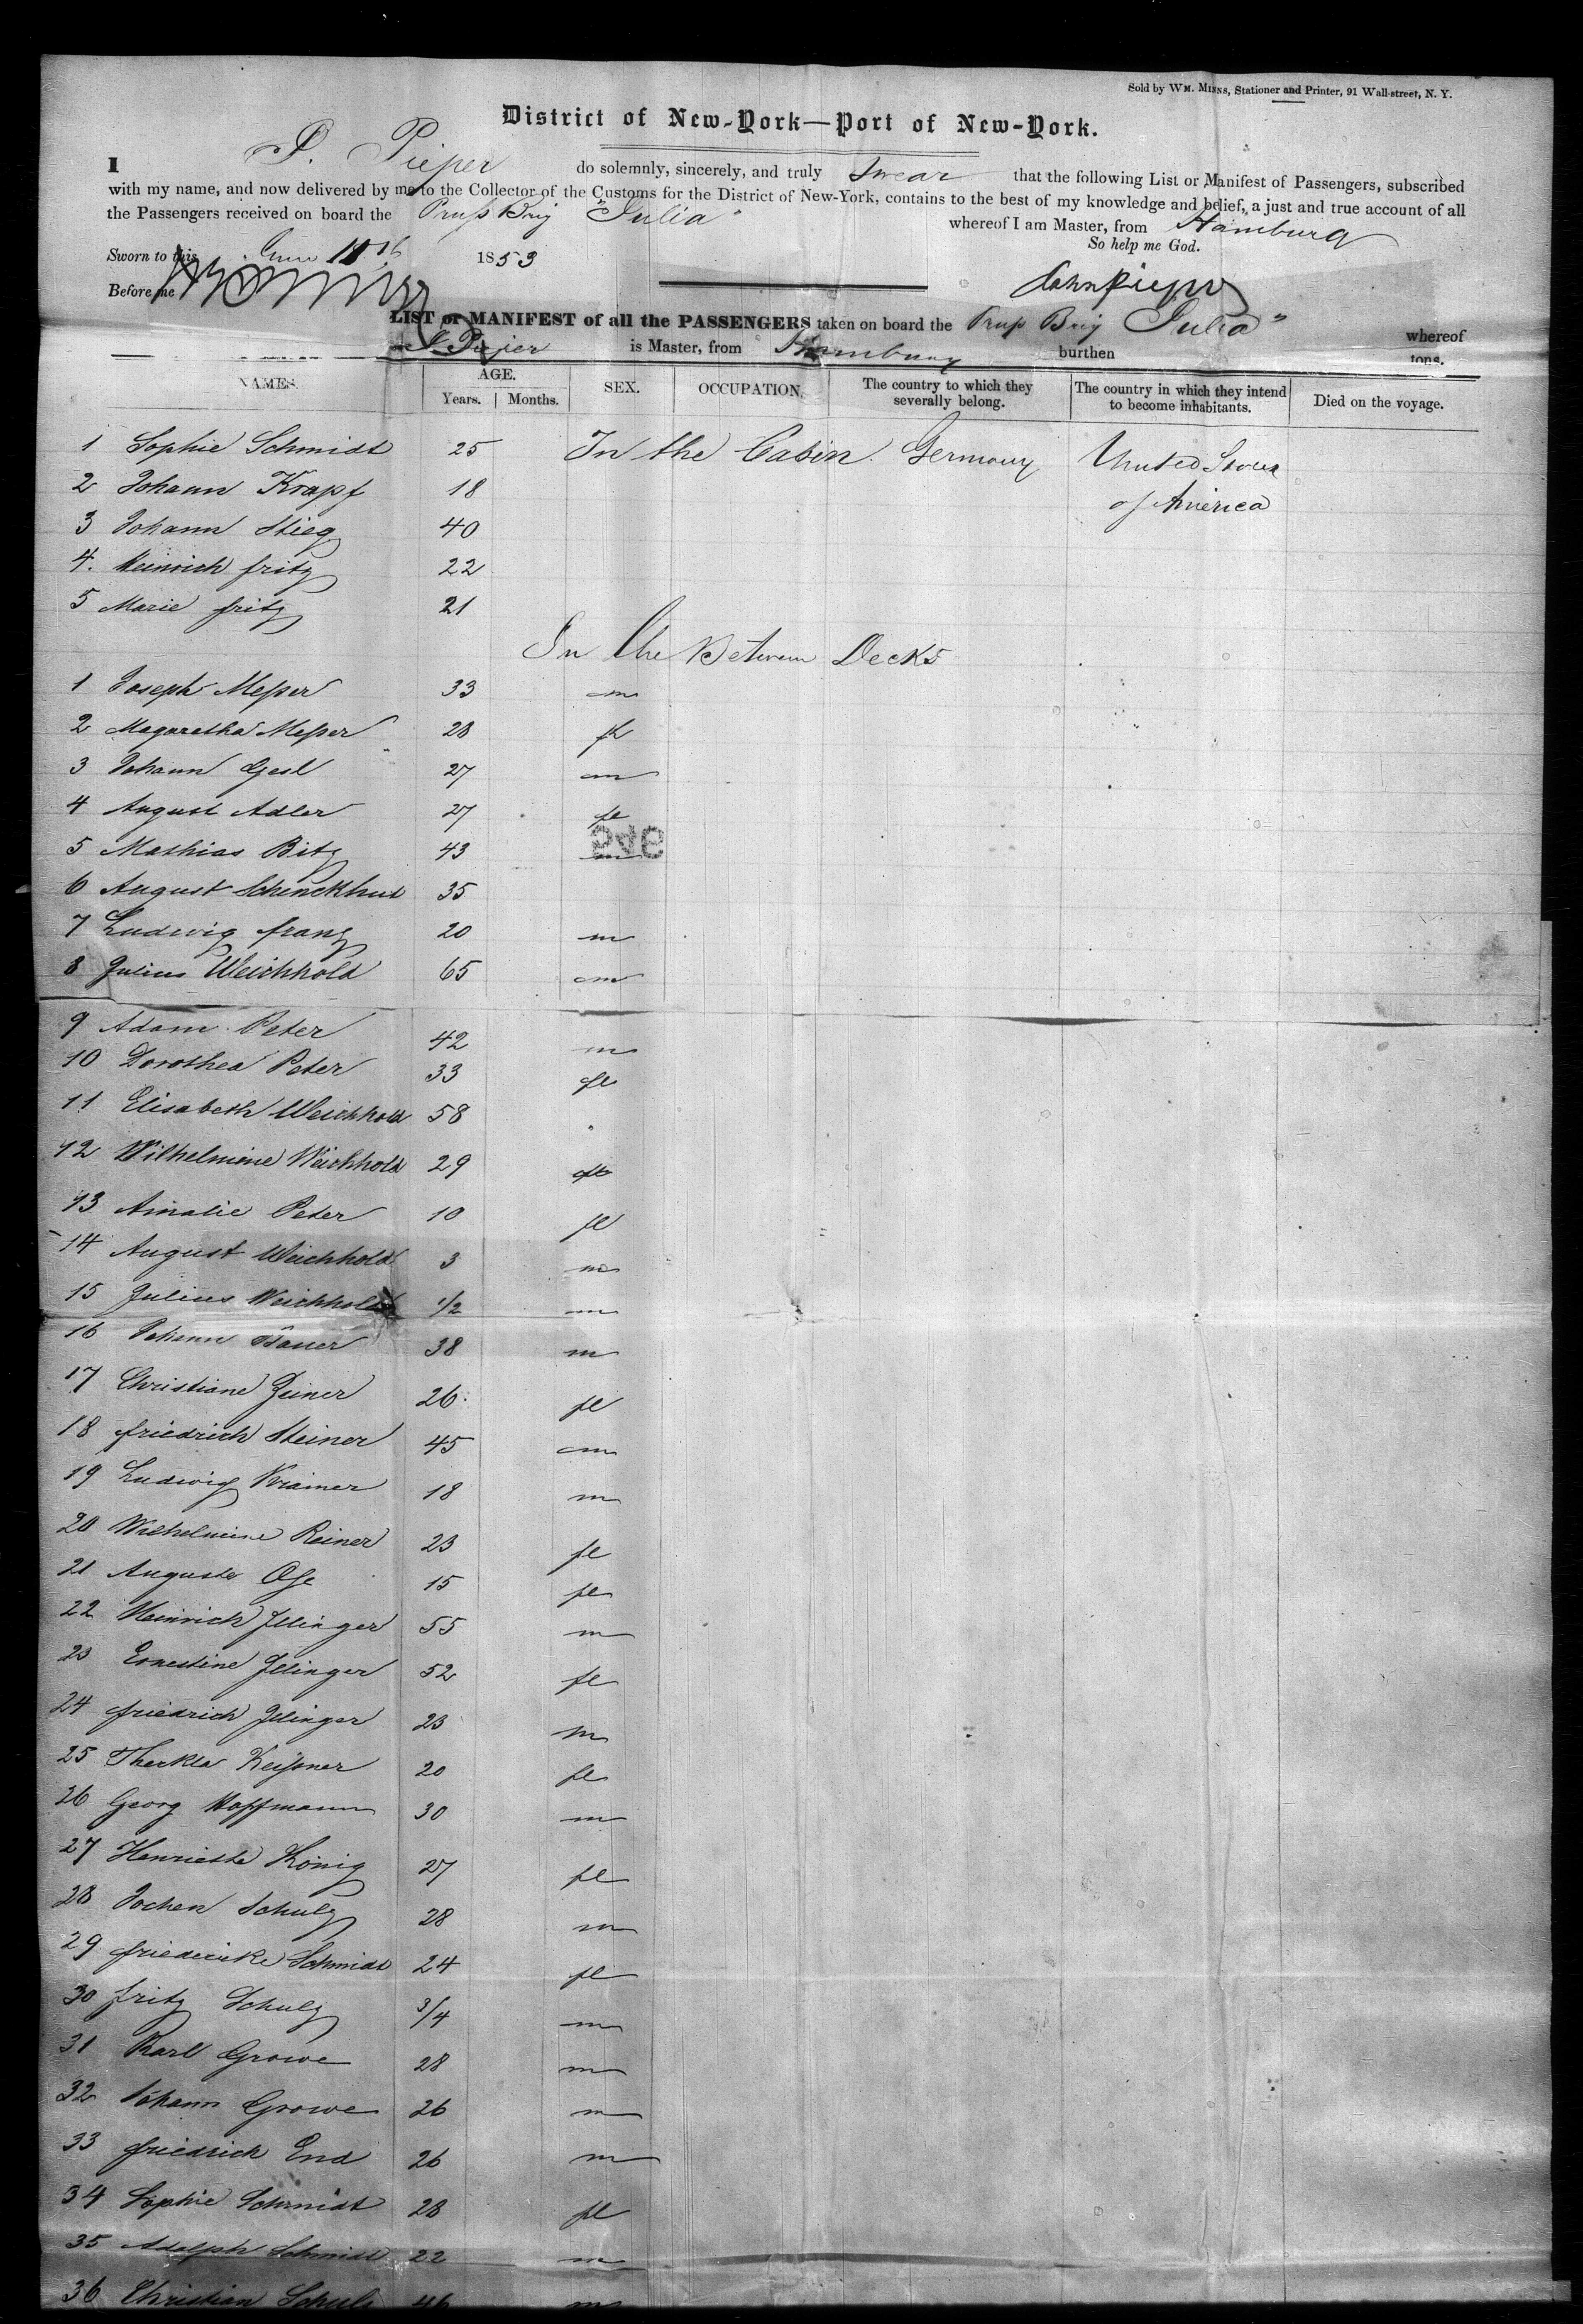 Sold by WM. MINNS, Stationer and Printer, 91 Wall-street, N. Y.
District of New-York—Port of New-York.
I J. Pieper do solemnly, sincerely, and truly swear that the following List or Manifest of Passengers, subscribed
with my name, and now delivered by me to the Collector of the Customs for the District of New-York, contains to the best of my knowledge and belief, a just and true account of all
the Passengers received on board the Pruß Brig "Julia" whereof I am Master, from Hamburg
So help me God.
Sworn to this June 1853
Before me
LIST or MANIFEST of all the PASSENGERS taken on board the Pruß Brig Julia" whereof
J. Pieper is Master, from Hamburg burthen tons.
NAMES. AGE. Years. Months. SEX. OCCUPATION. The country to which they severally belong. The country in which they intend to become inhabitants. Died on the voyage.
1 Sophie Schmidt 25 In the Cabin Germany United States
2 Johann Krapf 18 of America
3 Johann Stieg 40
4. Heinrich Fritz 22
5 Marie Fritz 21
In the Between Decks
1 Joseph Meßer 33 m
2 Magaretha Meßer 28 fl
3 Johann Gesl 27 m
4 August Adler 27 fl
5 Mathias Bitz 43 m
6 August Schenckhut 35
7 Ludwig Franz 20 m
8 Julius Weichhold 65 m
9 Adam Peter 42 m
10 Dorothea Peter 33 fl
11 Elisabeth Weichhold 58 "
12 Wilhelmine Weichhold 29 fl
13 Amalie Peter 10 fl
14 August Weichhold 3 m
15 Julius Weichhold 1/2 m
16 Johann Bauer 38 m
17 Christiane Zeiner 26 fl
18 Friedrich Steiner 45 m
19 Ludwig Kramer 18 m
20 Wilhelmine Reiner 23 fl
21 Auguste 15 fl
22 Heinrich Illinger 55 m
23 Ernestine Illinger 52 fl
24 Friedrich Illinger 23 m
25 Theckla Keißner 20 fl
26 Georg Hoffmann 30 m
27 Henriette König 27 fl
28 Jochen Schulz 28 m
29 Friedericke Schmidt 24 fl
30 Fritz Schulz 3/4 m
31 Karl Growe 28 m
32 Johann Growe 26 m
33 Friedrich End 26 m
34 Sophie Schmidt 28 fl
35 Adolph Schmidt 22 m
36 Christian Schulz 46 m